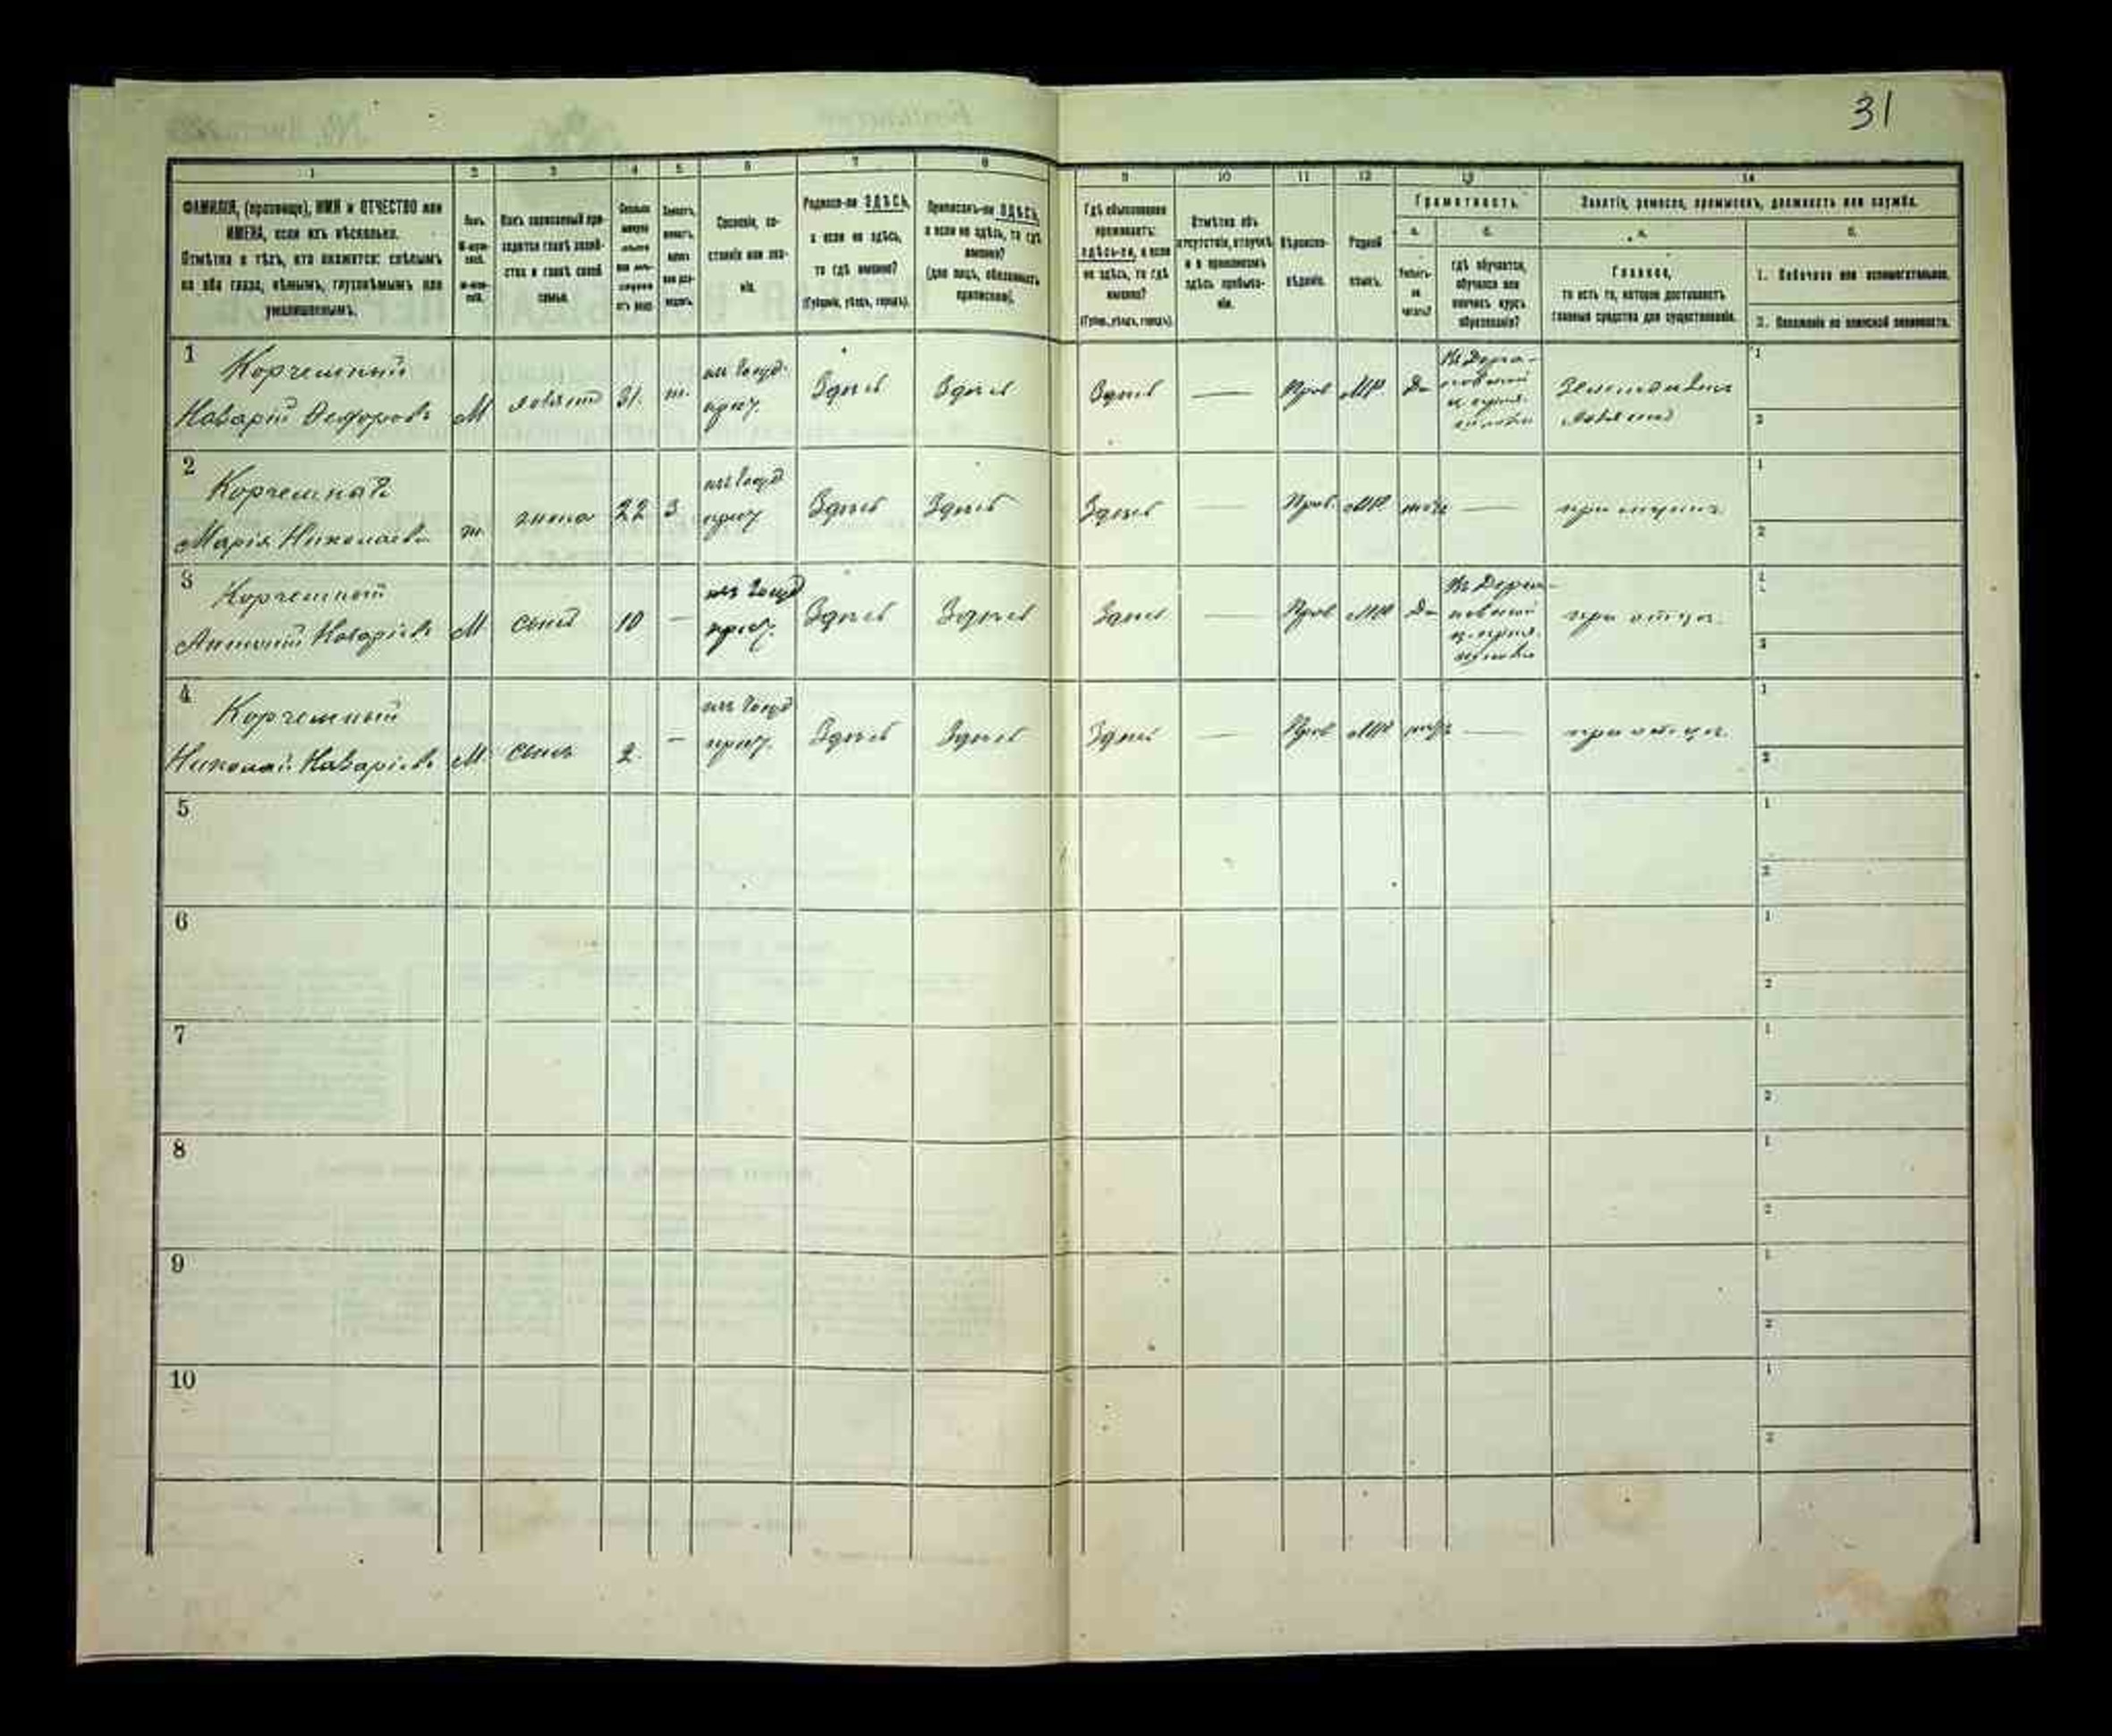 31
1
2
3
4
5
6
7
8
9
10
11
12
13
14
ФАМИЛІЯ, (прозвище), ИМЯ и ОТЧЕСТВО или
ИМЕНА, если ихъ нѣсколько.
Отмѣтка о тѣхъ, кто окажется: слѣпымъ
на оба глаза, нѣмымъ, глухонѣмымъ или
умалишеннымъ.
Полъ.
Какъ записанный при-
ходится главѣ хозяй-
ства и главѣ своей
семьи.
Сословіе, со-
стояніе или зва-
ніе.
Родился-ли ЗДѢСЬ,
а если не здѣсь,
то гдѣ именно?
(Губернія, уѣздъ, городъ).
Приписанъ-ли ЗДѢСЬ,
а если не здѣсь, то гдѣ
именно?
(для лицъ, обязанныхъ
припискою).
Гдѣ обыкновенно
проживаетъ:
здѣсь-ли, а если
не здѣсь, то гдѣ
именно?
(Губер., уѣздъ, городъ).
Отмѣтка объ
отсутствіи, отлучкѣ
и о временномъ
здѣсь пребыва-
ніи.
Вѣроиспо-
вѣданіе.
Родной
языкъ.
Грамотность.
а.
Умѣетъ-
ли
читать?
б.
гдѣ обучается,
обучался или
кончилъ курсъ
образованія?
Занятіе, ремесло, промыселъ, должность или служба.
а.
Главное,
то есть то, которое доставляетъ
главныя средства для существованія.
б.
1. Побочное или вспомогательное.
2. Положеніе по воинской повинности.
1
Корчемный
Назарій Федоровъ
М
хозяинъ
31.
ж.
изъ Госуд.
крест.
Здѣсь
Здѣсь
Здѣсь
—
Прав
МР
Да
Земледѣлецъ
хозяинъ
1
2
2
Корчемная
Марія Николаева
ж.
жена
22
З
изъ Госуд
крест.
Здѣсь
Здѣсь
Здѣсь
—
Прав.
МР
нѣтъ
—
при мужѣ
1
2
3
Корчемный
Антоній Назаріевъ
М
сынъ
10
—
изъ Госуд
крест.
Здѣсь
Здѣсь
Здѣсь
—
Прав
МР
Да
при отцѣ.
1
2
4
Корчемный
Николай Назаріевъ
М
сынъ
2.
—
изъ Госуд
крест.
Здѣсь
Здѣсь
Здѣсь
—
Прав
МР
нѣтъ
—
при отцѣ.
1
2
5
1
2
6
1
2
7
1
2
8
1
2
9
1
2
10
1
2